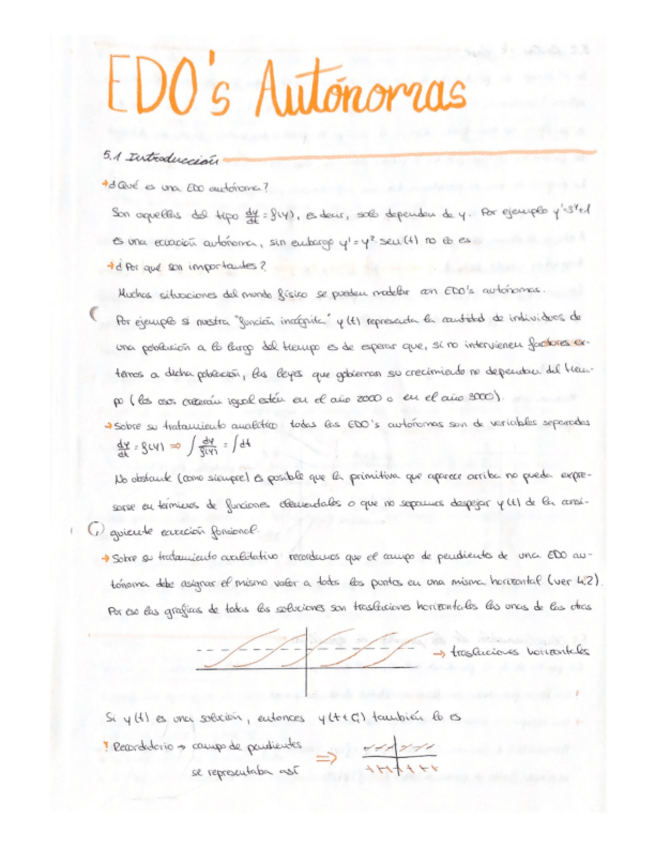 EDO's Autónomas
5.1 Introducción
→ ¿Qué es una EDO autónoma?
Son aquellas del tipo dy/dt = f(y), es decir, solo dependen de y. Por ejemplo y'=3y+1
es una ecuación autónoma, sin embargo y' = y² sen(t) no lo es
→ ¿Por qué son importantes?
Muchas situaciones del mundo físico se pueden modelar con EDO's autónomas.
Por ejemplo si nuestra "función incógnita" y(t) representa la cantidad de individuos de
una población a lo largo del tiempo es de esperar que, si no intervienen factores ex-
ternos a dicha población, las leyes que gobiernan su crecimiento no dependan del tiem-
po (los osos crecerán igual estén en el año 2000 o en el año 3000).
→ Sobre su tratamiento analítico: todas las EDO's autónomas son de variables separadas
dy/dt = f(y) ⇒ ∫ dy/f(y) = ∫ dt
No obstante (como siempre) es posible que la primitiva que aparece arriba no pueda expre-
sarse en términos de funciones elementales o que no sepamos despejar y(t) de la consi-
guiente ecuación funcional.
→ Sobre su tratamiento cualitativo: recordemos que el campo de pendientes de una EDO au-
tónoma debe asignar el mismo valor a todos los puntos en una misma horizontal (ver 4.2).
Por eso las gráficas de todas las soluciones son traslaciones horizontales las unas de las otras
→ traslaciones horizontales
Si y(t) es una solución, entonces y(t+C) también lo es
! Recordatorio → campo de pendientes ⇒
se representaba así